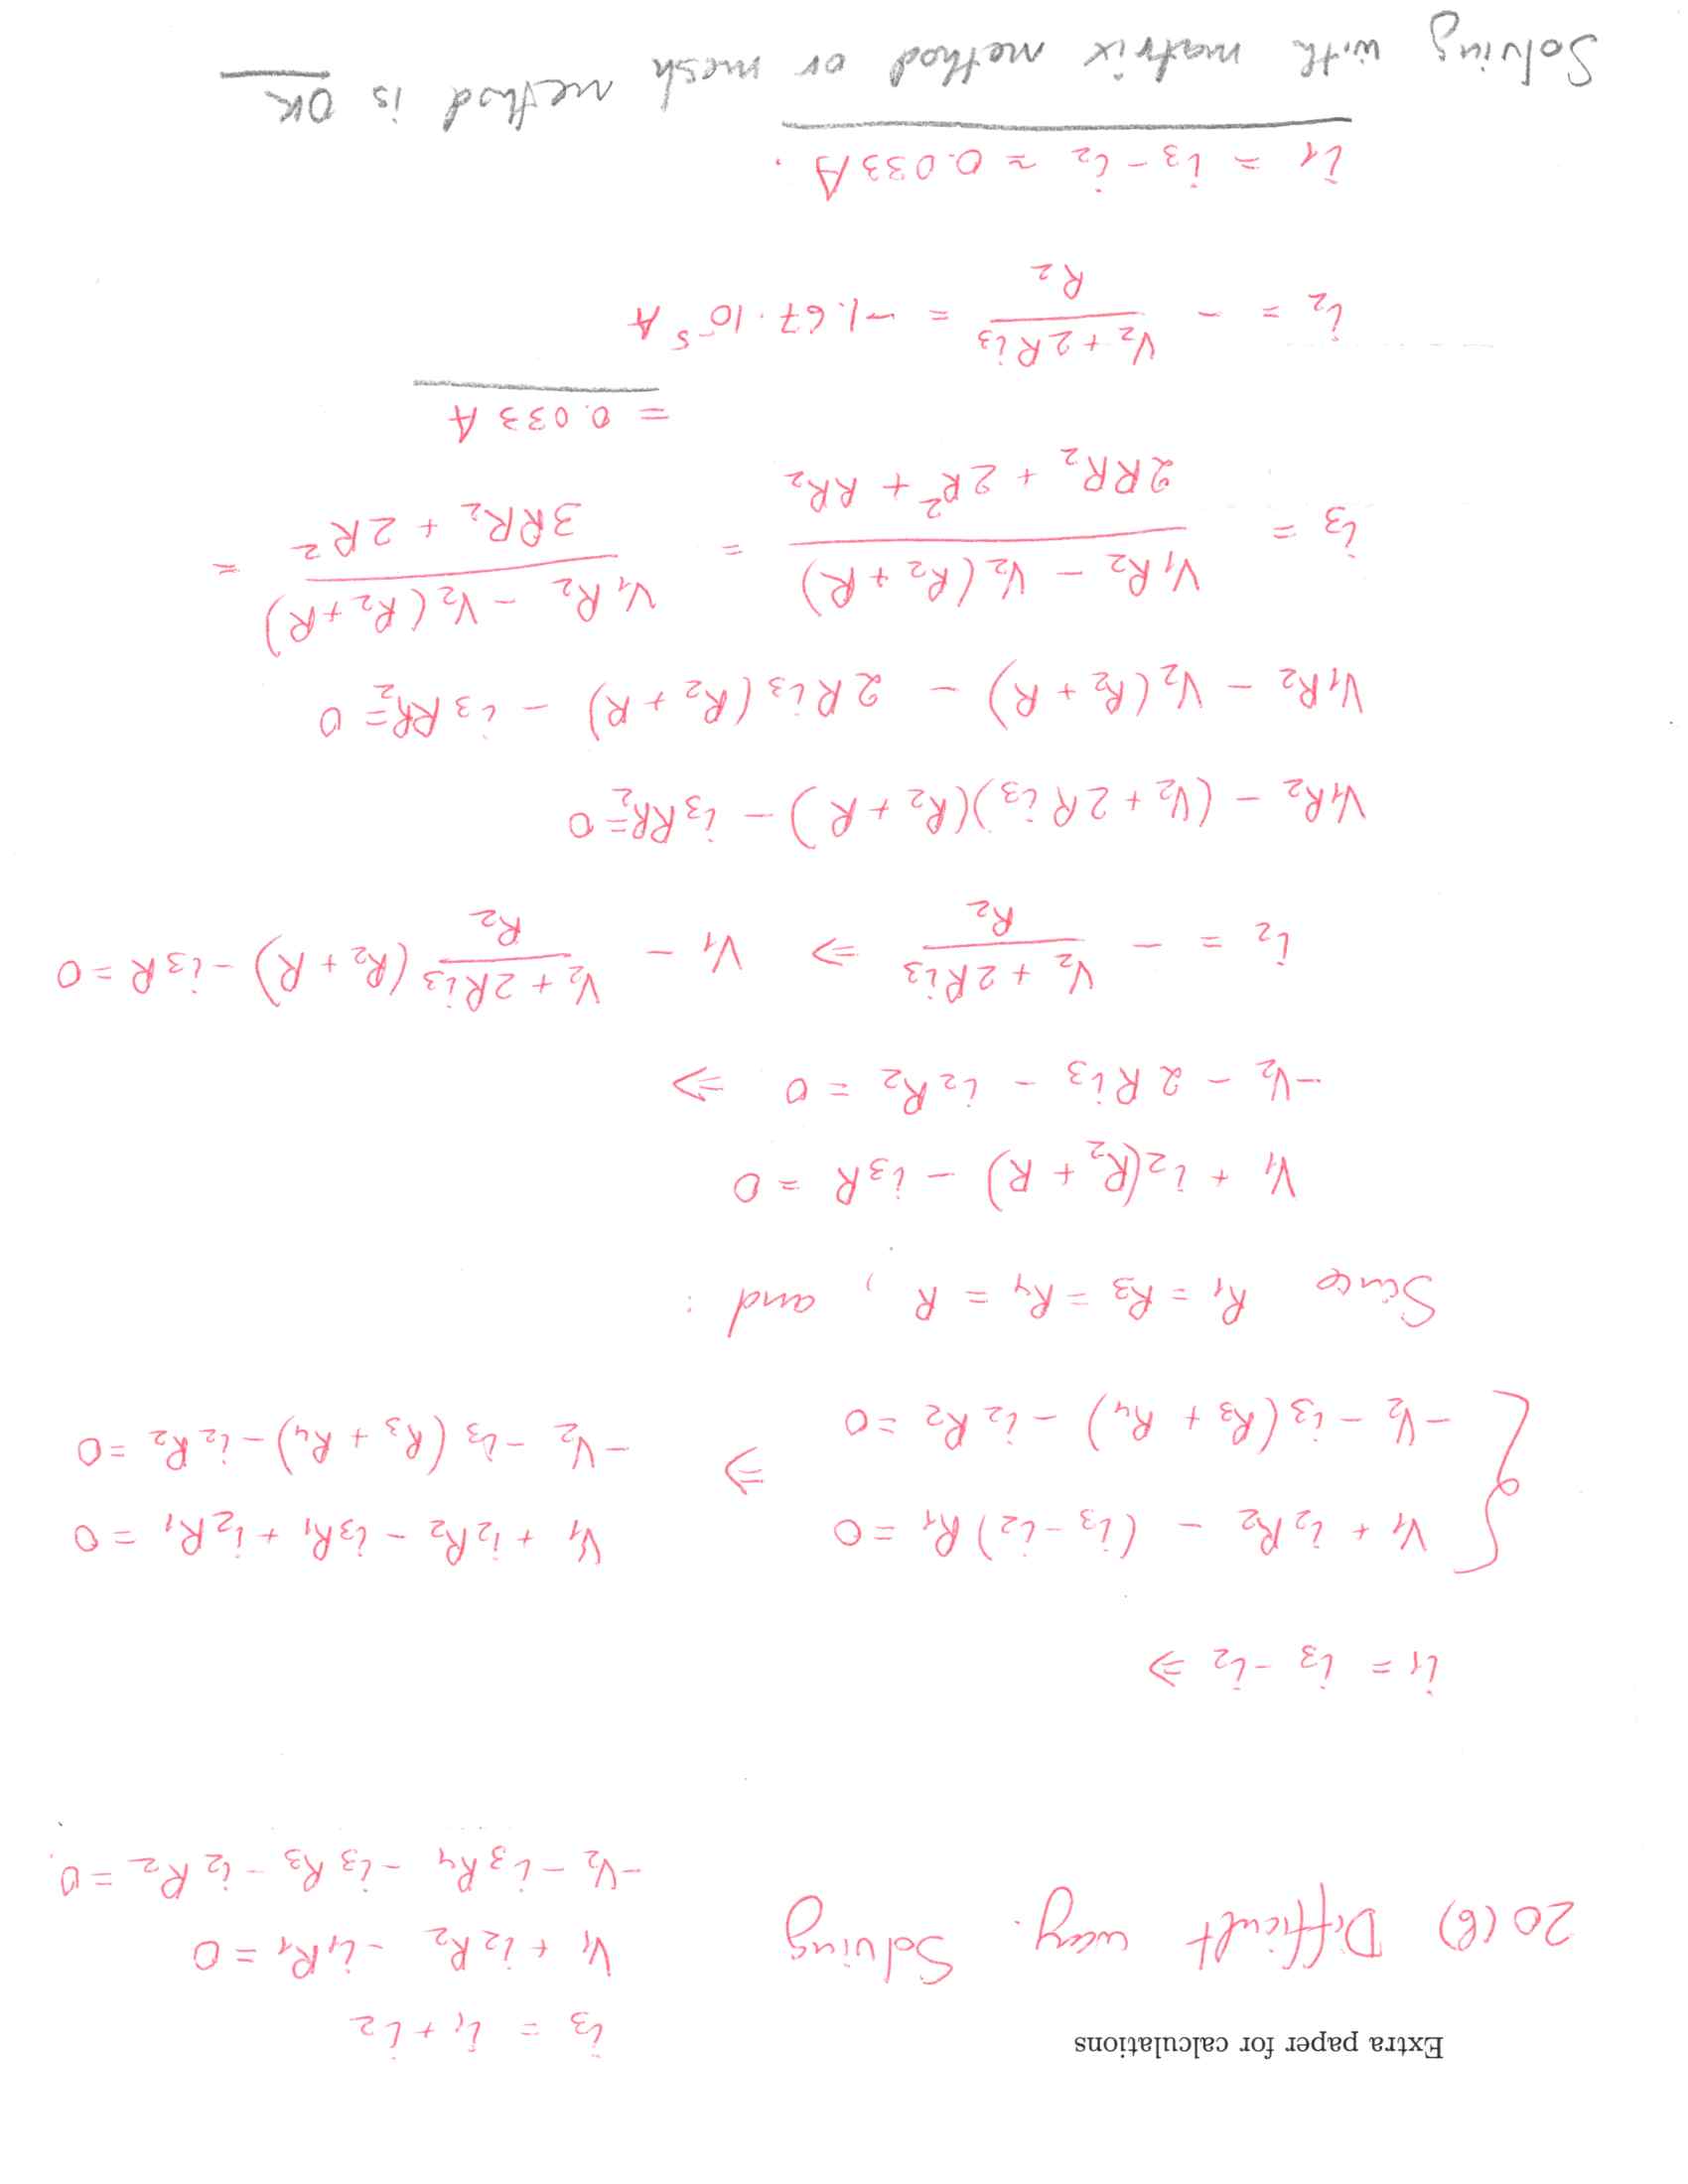 Extra paper for calculations
i₃ = i₁ + i₂
20(б) Difficult way. Solving
V₁ + i₂R₂ - i₁R₁ = 0
-V₂ - i₃R₄ - i₃R₃ - i₂R₂ = 0.
i₁ = i₃ - i₂ ⇒
{ V₁ + i₂R₂ - (i₃ - i₂)R₁ = 0
-V₂ - i₃(R₃ + R₄) - i₂R₂ = 0
⇒
V₁ + i₂R₂ - i₃R₁ + i₂R₁ = 0
-V₂ - i₃(R₃ + R₄) - i₂R₂ = 0
Since R₁ = R₃ = R₄ = R , and :
V₁ + i₂(R₂ + R) - i₃R = 0
-V₂ - 2Ri₃ - i₂R₂ = 0 ⇒
i₂ = - (V₂ + 2Ri₃)/R₂ ⇒ V₁ - (V₂ + 2Ri₃)/R₂ (R₂ + R) - i₃R = 0
V₁R₂ - (V₂ + 2Ri₃)(R₂ + R) - i₃RR₂ = 0
V₁R₂ - V₂(R₂ + R) - 2Ri₃(R₂ + R) - i₃RR₂ = 0
i₃ = (V₁R₂ - V₂(R₂ + R))/(2RR₂ + 2R² + RR₂) = (V₁R₂ - V₂(R₂ + R))/(3RR₂ + 2R²) =
= 0.033 A
i₂ = - (V₂ + 2Ri₃)/R₂ = -1.67·10⁻⁵ A
i₁ = i₃ - i₂ ≈ 0.033 A.
Solving with matrix method or mesh method is OK